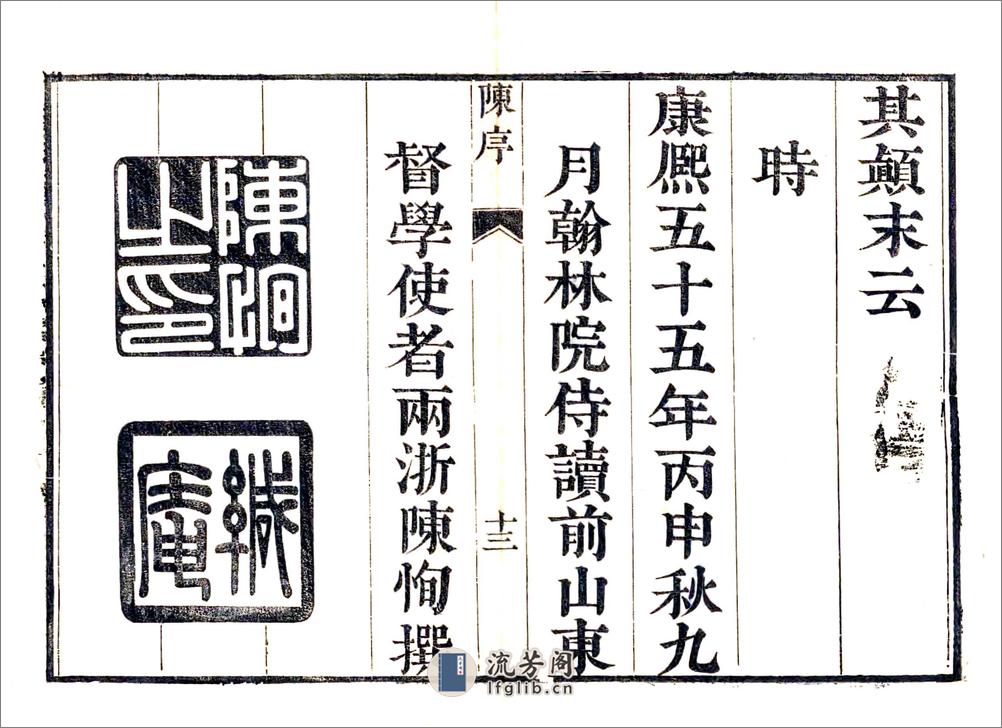 其顛末云
時
康熙五十五年丙申秋九
月翰林院侍讀前山東
陳序
十三
督學使者兩浙陳恂撰
陳恂之印
緘庵
流芳阁
lfglib.cn